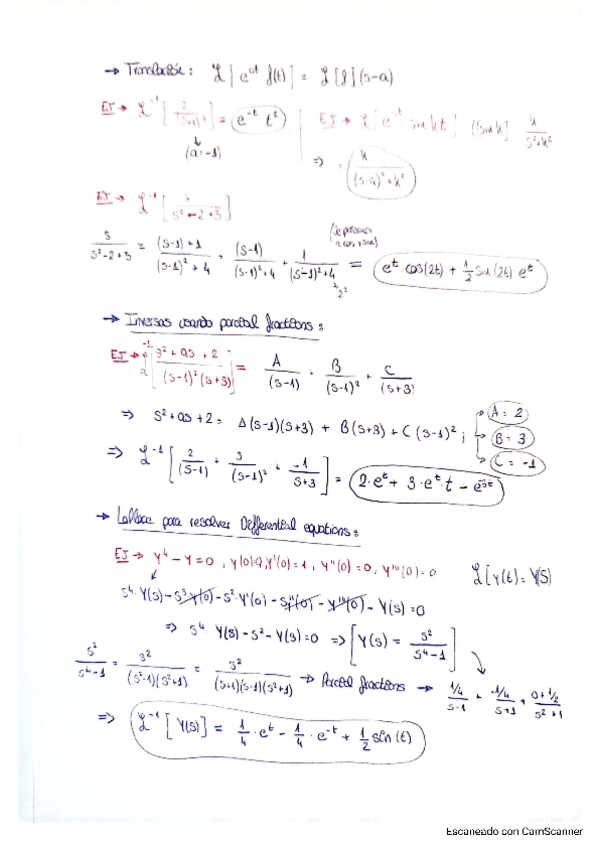 → Translación: ℒ[e^at f(t)] = ℒ[f](s-a)
EJ → ℒ^-1[2/(s+1)^3] = e^-t t^2
(a=-1)
EJ → ℒ[e^at sin kt] k/(s^2+k^2)
=> = k/((s-a)^2+k^2)
EJ → ℒ^-1[s/(s^2-2+5)]
s/(s^2-2+5) = ((s-1)+1)/((s-1)^2+4) = (s-1)/((s-1)^2+4) + 1/((s-1)^2+4) = e^t·cos(2t) + 1/2 sin(2t) e^t
2^2
→ Inversas usando parcial fractions:
EJ → ℒ^-1[(s^2+9s+2)/((s-1)^2(s+3))] = A/(s-1) + B/(s-1)^2 + C/(s+3)
=> s^2+9s+2 = A(s-1)(s+3) + B(s+3) + C(s-1)^2; A=2
B=3
C=-1
=> ℒ^-1[2/(s-1) + 3/(s-1)^2 + -1/(s+3)] = 2·e^t + 3·e^t·t - e^-3t
→ Laplace para resolver Differential equations:
EJ → y^4 - y = 0, y(0)=0, y'(0)=1, y''(0)=0, y'''(0)=0 ℒ[y(t) = Y(s)
s^4·Y(s) - s^3 y(0) - s^2·y'(0) - s y''(0) - y'''(0) - Y(s) = 0
=> s^4·Y(s) - s^2 - Y(s) = 0 => [Y(s) = s^2/(s^4-1)]
s^2/(s^4-1) = s^2/((s^2-1)(s^2+1)) = s^2/((s+1)(s-1)(s^2+1)) → Parcial fractions → (1/4)/(s-1) + (-1/4)/(s+1) + (0+1/2)/(s^2+1)
=> ℒ^-1[Y(s)] = 1/4·e^t - 1/4·e^-t + 1/2 sin(t)
Escaneado con CamScanner